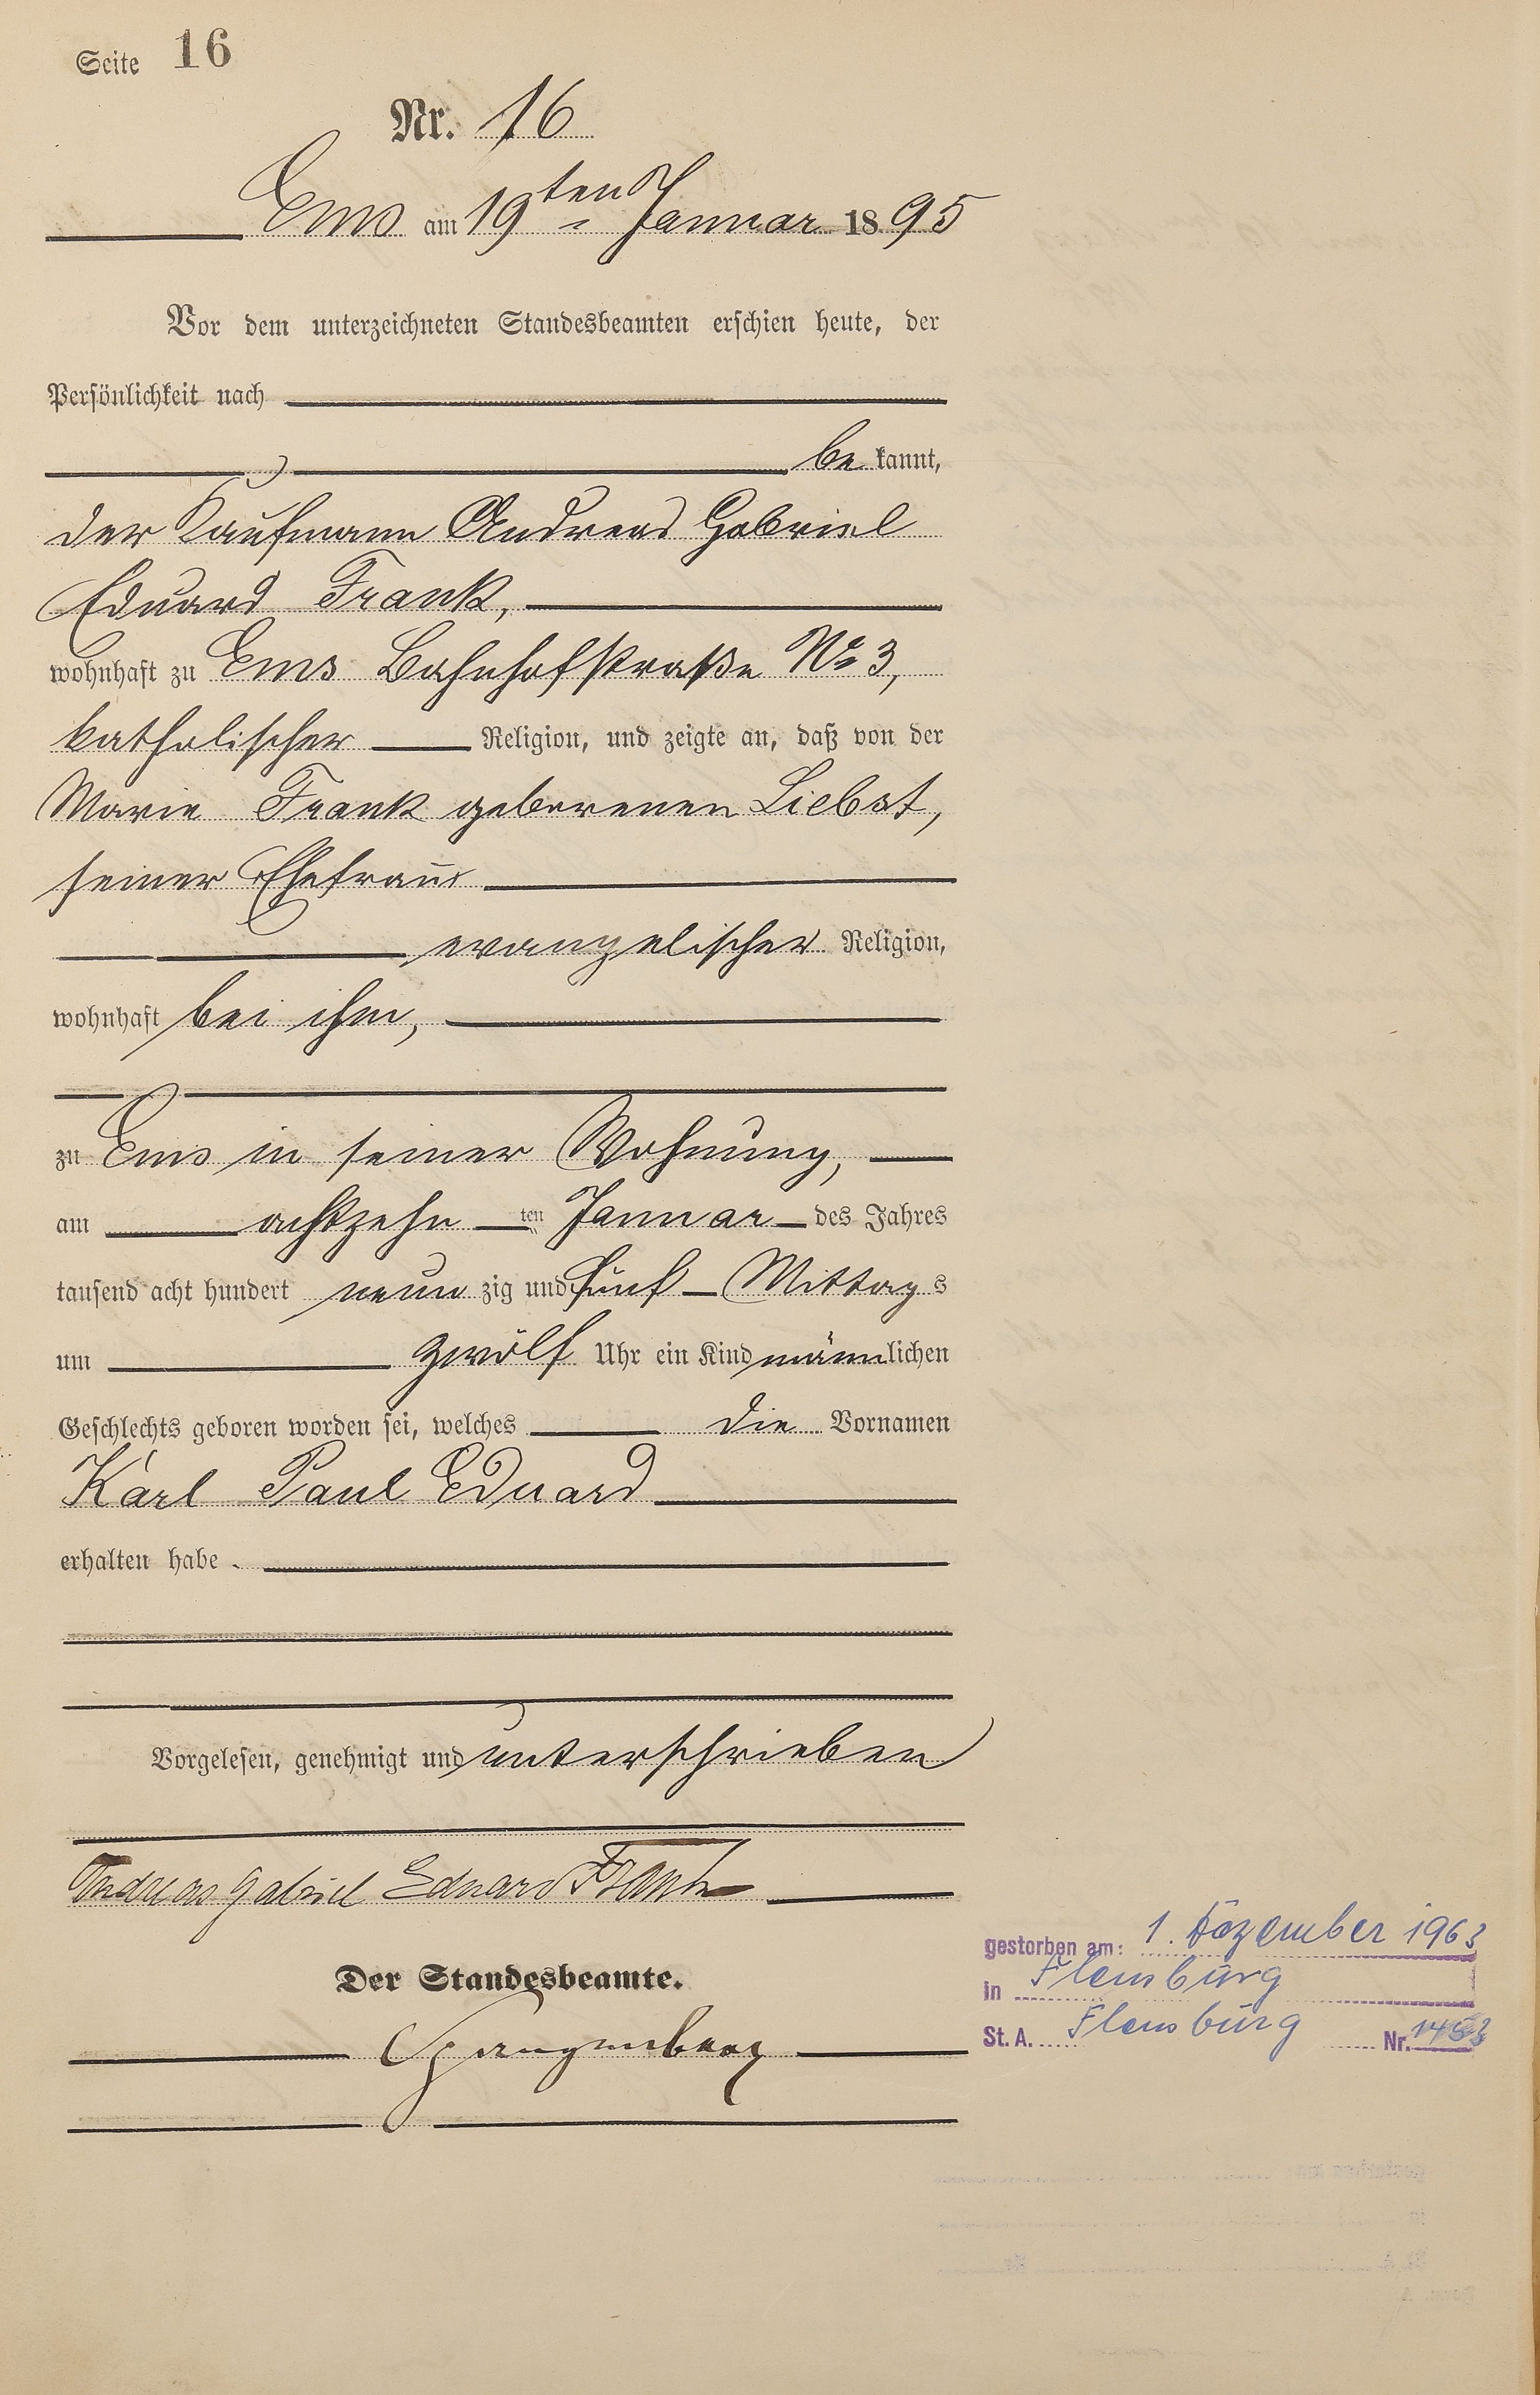 Seite 16
Nr. 16
Ems am 19ten Januar 1895
Vor dem unterzeichneten Standesbeamten erschien heute, der
Persönlichkeit nach
be kannt,
der Kaufmann Andreas Gabriel
Eduard Frank,
wohnhaft zu Ems Bahnhofstraße No 3,
katholischer Religion, und zeigte an, daß von der
Marie Frank geborenen Liebst,
seiner Ehefrau
evangelischer Religion,
wohnhaft bei ihm,
zu Ems in seiner Wohnung,
am achtzehn ten Januar des Jahres
tausend acht hundert neun zig und fünf Mittags
um zwölf Uhr ein Kind männlichen
Geschlechts geboren worden sei, welches die Vornamen
Karl Paul Eduard
erhalten habe.
Vorgelesen, genehmigt und unterschrieben
Andreas Gabriel Eduard Frank
Der Standesbeamte.
Spangenberg
gestorben am: 1. Dezember 1963
in Flensburg
St. A. Flensburg Nr.